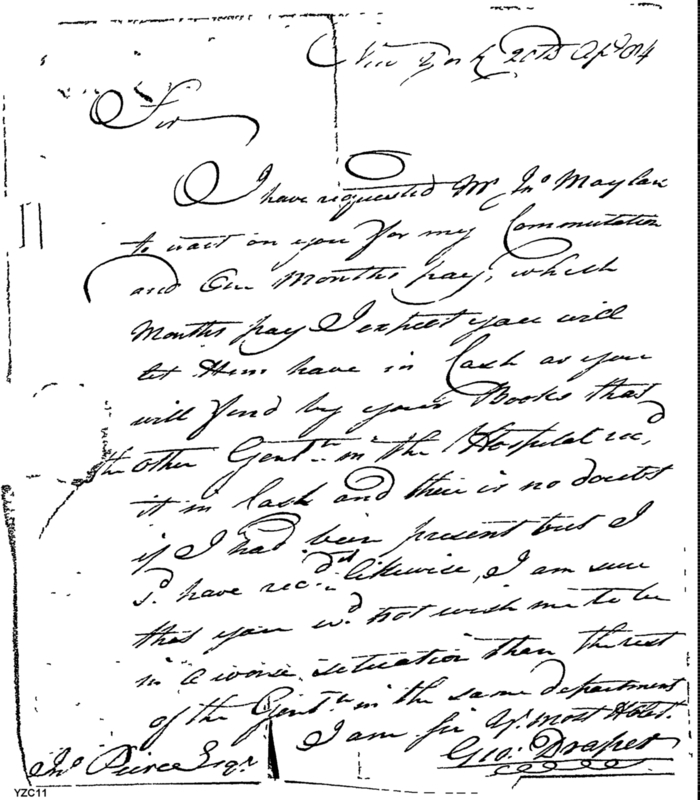 New York 20th Apl 84
Sir
I have requested Mr Jno Maylan
to wait on you for my Commutation
and One Months pay, which
Months pay I expect you will
let Him have in Cash as you
will find by your Books that
the other Gentn in the Hospital recd
it in Cash and their is no doubt
if I had been present but I
sd have recd it likewise, I am sure
that you wd not wish me to be
in a worse situation than the rest
of the Gentn in the same department
I am Sir Yr most Hble St.
Geo: Draper
Jno Pierce Esqr
YZC11